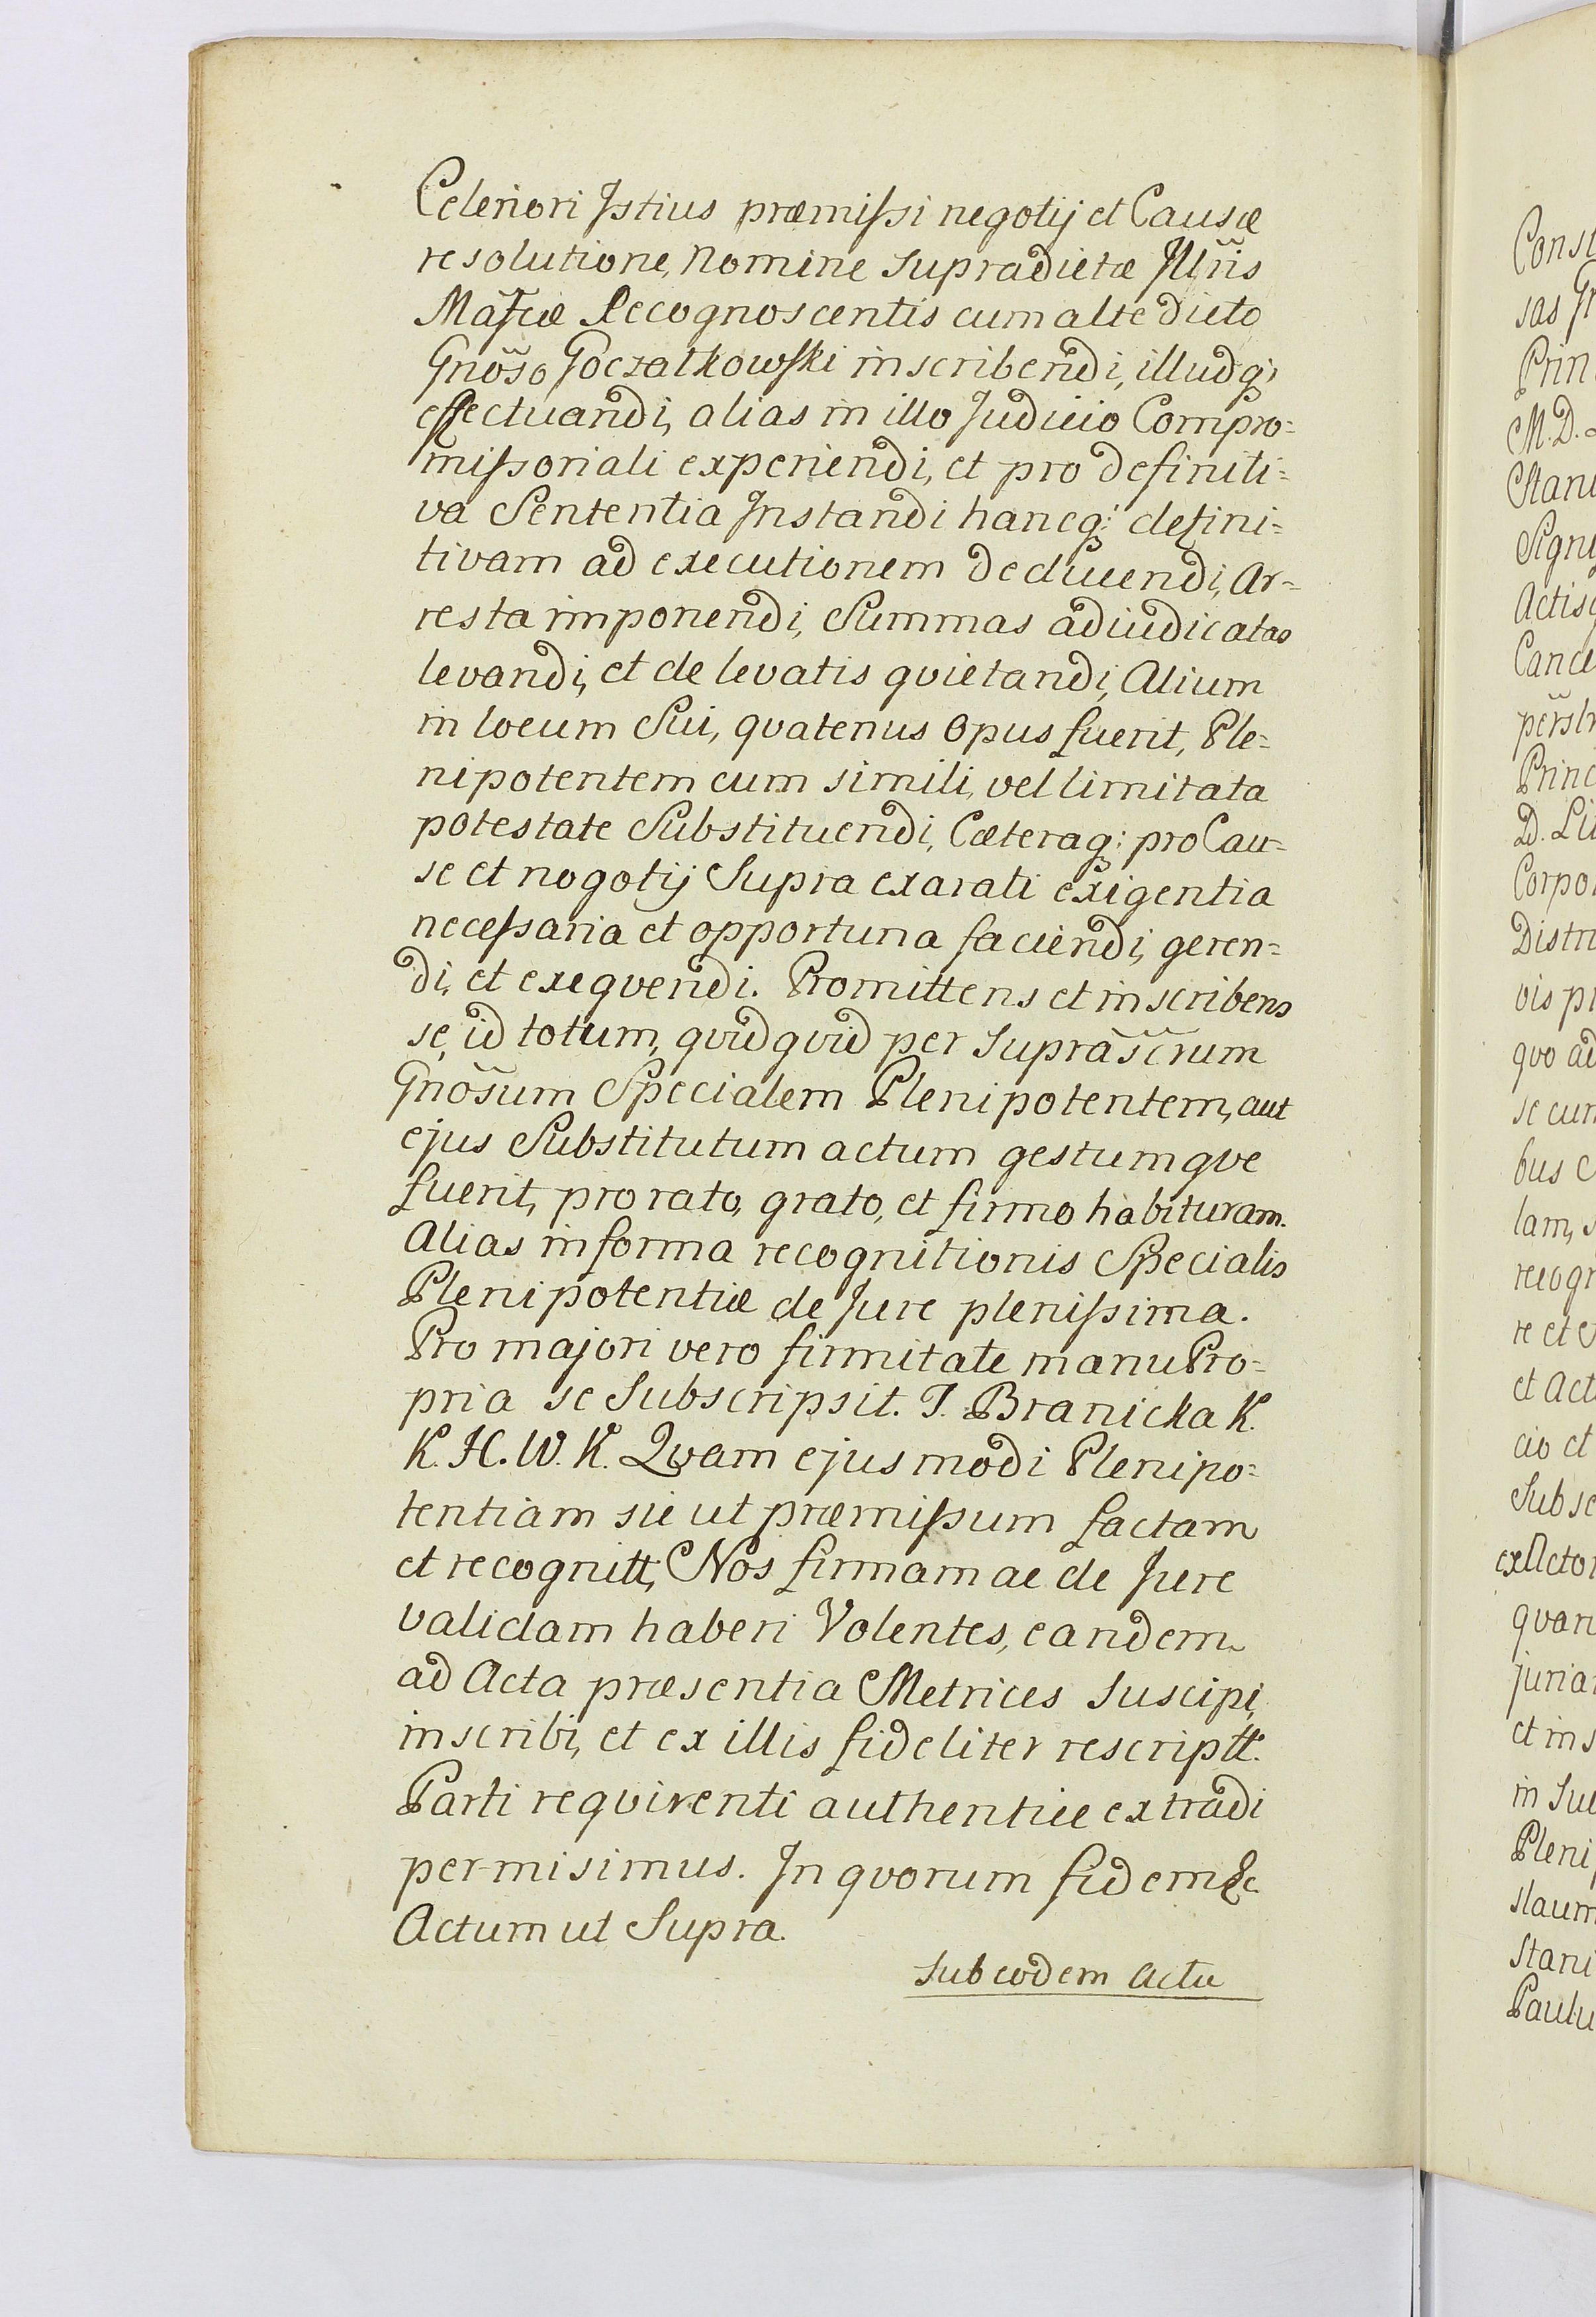 Celeriori Istius præmissi negotij et Causæ
resolutione, Nomine supradictæ Illñis
Mãfcæ Recognoscentis cum alte dicto
Gnõso Goczalkowski inscribendi, illudq;
effectuandi, alias in illo Judicio Compro=
missoriali experiendi, et pro definiti=
va Sententia Instandi hancq; defini=
tivam ad executionem deducendi, Ar=
resta imponendi, Summas adiudicatas
levandi, et de levatis quietandi, Alium
in locum Sui, quatenus Opus fuerit, Ple=
nipotentem cum simili, vel limitata
potestate Substituendi, Cæteraq; pro Cau=
se et nogotij Supra exarati exigentia
necessaria et opportuna faciendi, geren=
di, et exequendi. Promittens et inscribens
se, id totum, quidquid per suprãsc̃rum
Gnõsum Specialem Plenipotentem, aut
ejus Substitutum actum gestumque
fuerit, pro rato, grato, et firmo habituram.
Alias in forma recognitionis Specialis
Plenipotentiæ de Jure plenissima.
Pro majori vero firmitate manu Pro=
pria se Subscripsit. J. Branicka K.
K. H. W. K. Quam ejusmodi Plenipo=
tentiam sic ut præmissum factam
et recognitt, Nos firmam ac de Jure
validam haberi Volentes, eandem
ad Acta præsentia Metrices Suscipi,
inscribi, et ex illis fideliter rescriptt.
Parti requirenti authentice extradi
permisimus. In quorum fidem &c
Actum ut Supra.
Sub eodem Actu
Const
sas
Prin
M. D.
Stani
Sign
Actis
Cance
Princ
D. Li
Corpo
Distri
vis pr
quo ad
se cum
bus
lam,
recogn
re et
et Act
cio et
Subsc
ex Actor
quam
juria
et ins
in Sue
Pleni
slaum
Stani
Paulu